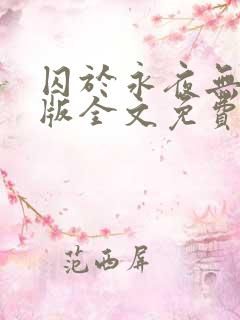 囚於永夜無
版全文免費
范西屏